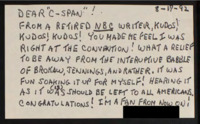 8-19-92
DEAR "C-SPAN"!
FROM A RETIRED NBC WRITER, KUDOS!
KUDOS! KUDOS! YOU MADE ME FEEL I WAS
RIGHT AT THE CONVENTION! WHAT A RELIEF
TO BE AWAY FROM THE INTERUPTIVE BABBLE
OF BROKAW, JENNINGS, AND RATHER. IT WAS
FUN SOAKING IT UP FOR MYSELF! HEARING IT
AS IT WAS SHOULD BE LEFT TO ALL AMERICANS.
CONGRATULATIONS! I'M A FAN FROM NOW ON!